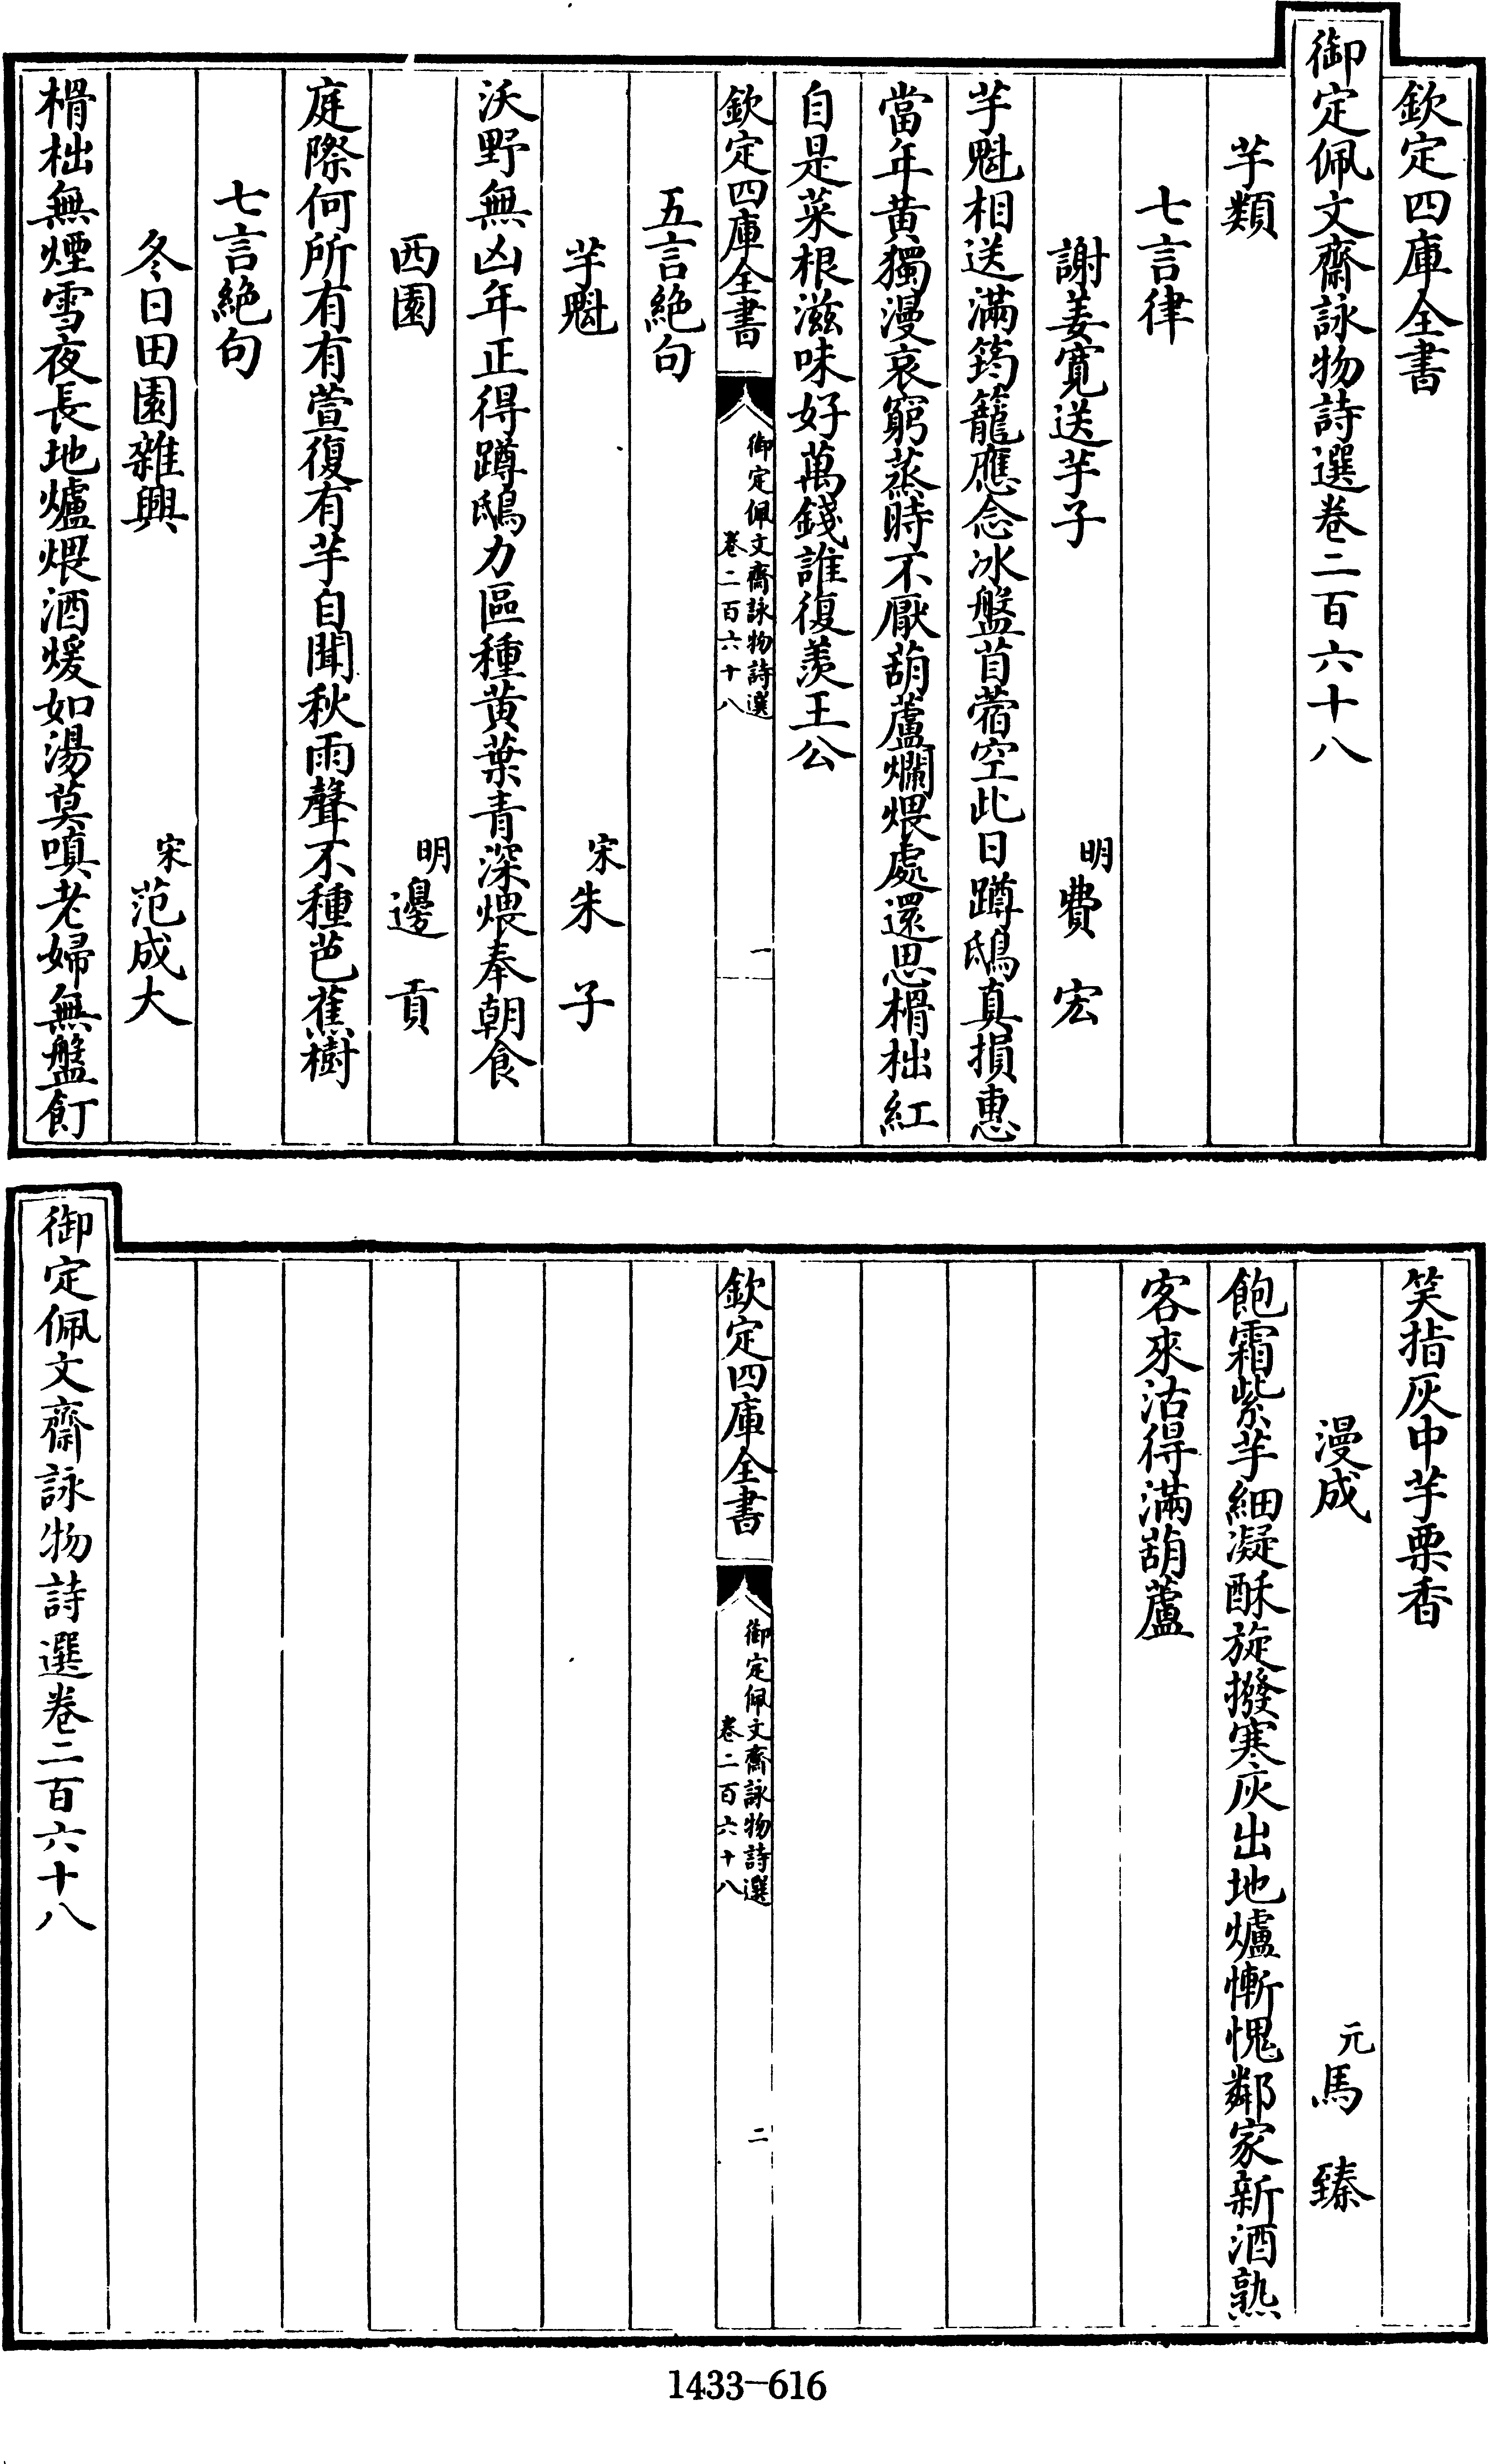 欽定四庫全書
御定佩文齋詠物詩選卷二百六十八
芋類
七言律
謝姜寬送芋子
明費宏
芋魁相送滿筠籠應念冰盤苜蓿空此日蹲鴟真損惠
當年黄獨漫哀窮蒸時不厭葫蘆爛煨處還思榾柮紅
自是菜根滋味好萬錢誰復羨王公
欽定四庫全書
御定佩文齋詠物詩選
卷二百六十八
一
五言絶句
芋魁
宋朱子
沃野無凶年正得蹲鴟力區種黄葉青深煨奉朝食
西園
明邊貢
庭際何所有有萱復有芋自聞秋雨聲不種芭蕉樹
七言絶句
冬日田園雜興
宋范成大
榾柮無煙雪夜長地爐煨酒煖如湯莫嗔老婦無盤飣
笑指灰中芋栗香
漫成
元馬臻
飽霜紫芋細凝酥旋撥寒灰出地爐慚愧鄰家新酒熟
客來沽得滿葫蘆
欽定四庫全書
御定佩文齋詠物詩選
卷二百六十八
二
御定佩文齋詠物詩選卷二百六十八
1433-616